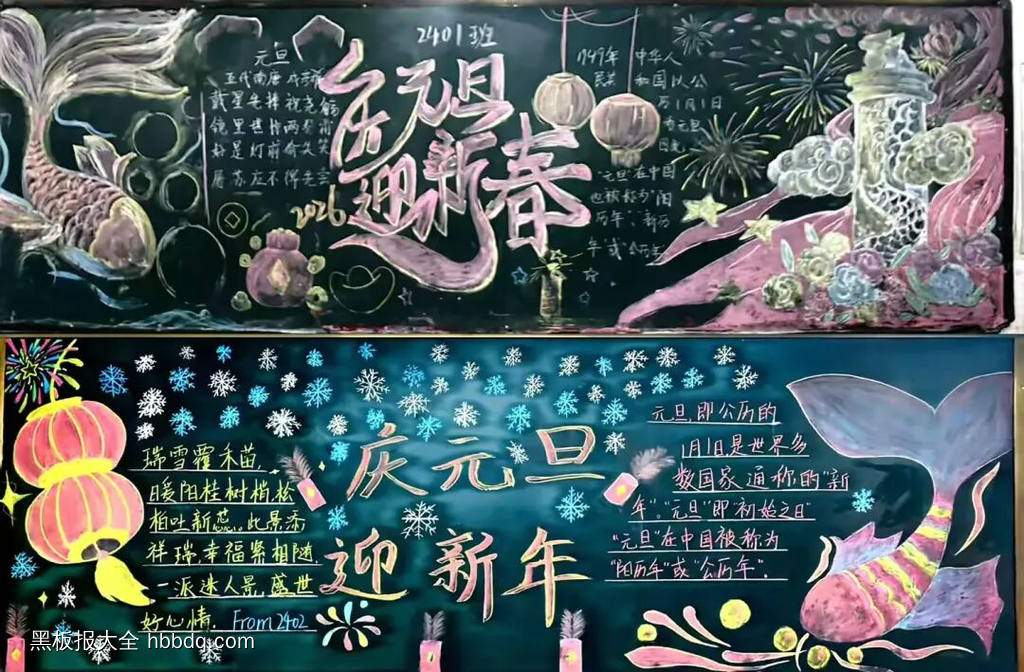 2401班
元旦
戴星先捧祝尧觞
镜里堪惊两鬓霜
好是灯前偷失笑
屠苏应不得先尝
庆元旦
迎新春
2026
1949年 中华人
民共 和国以公
历1月1日
为元旦
"元旦"在中国
也被称为"阳
历年"、"新历
年"或"公历年"
庆元旦
迎新年
瑞雪覆禾苗,
暖阳桂树梢,松
柏吐新蕊。此景添
祥瑞,幸福紧相随.
一派迷人景,盛世
好心情. From2402
元旦,即公历的
1月1日是世界多
数国家通称的"新
年"。"元旦"即"初始之日"
"元旦"在中国被称为
"阳历年"或"公历年".
黑板报大全 hbbdq.com